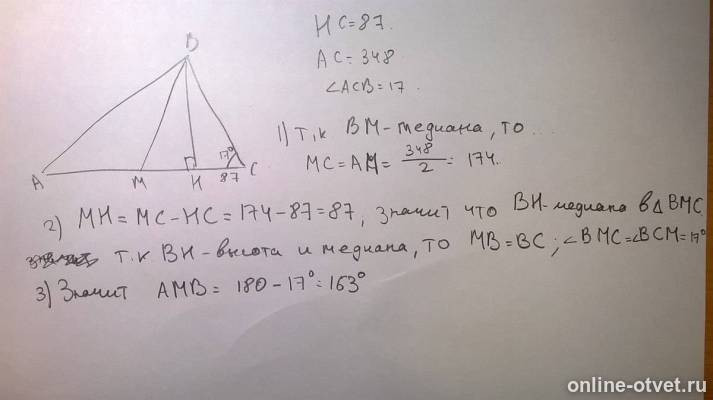 HC=87.
AC=348
∠ACB=17
B
17°
A M H 87 C
1) т.к BM-медиана, то...
MC=AM= 348/2 = 174.
2) MH=MC-HC=174-87=87, значит что BH-медиана в △ BMC
т.к BH-высота и медиана, то MB=BC; ∠BMC=∠BCM=17°
3) Значит AMB= 180-17°=163°
online-otvet.ru